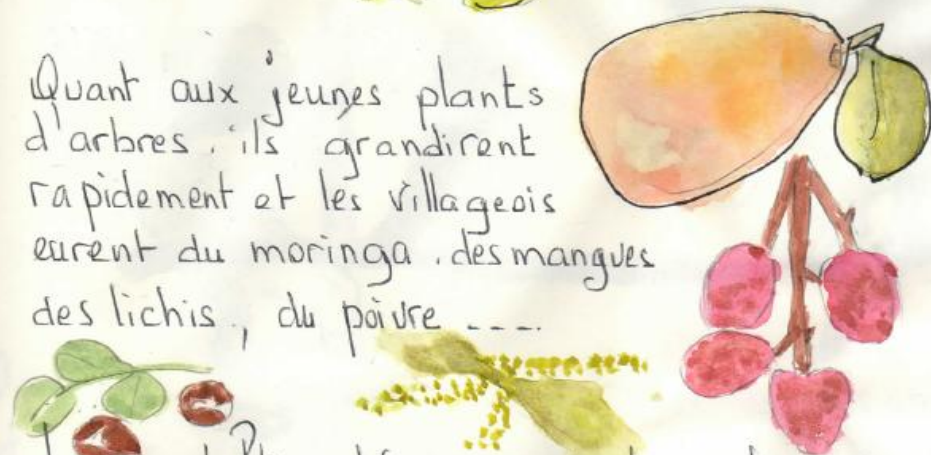 Quant aux jeunes plants
d'arbres. ils grandirent
rapidement et les villageois
eurent du moringa. des mangues
des lichis, du poivre ----.